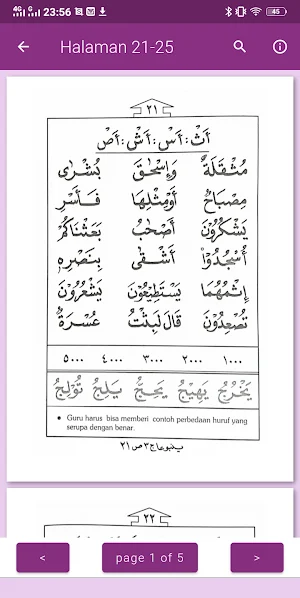 4G G 23:56 45
Halaman 21-25
٢١
اَثْ : اَسْ : اَشْ : اَصْ
مُثْقَلَةٌ وَإِسْحٰقَ بُشْرٰى
مِصْبَاحٌ أَوْمِثْلِهَا فَأَسْرِ
يَشْكُرُوْنَ أَصْحٰبُ بَعَثْنَاكُمْ
أُسْجُدُوْا أَشْقٰى بِنَصْرِهِ
إِثْمُهُمَا يَسْتَطِيْعُوْنَ يَشْعُرُوْنَ
تُصْعِدُوْنَ قَالَ لَبِثْتُ عُسْرَةٍ
١٠٠٠ ٢٠٠٠ ٣٠٠٠ ٤٠٠٠ ٥٠٠٠
يَخْرُجُ يَهِيْجُ يَحِجُّ يَلِجُ تُوْلِجُ
• Guru harus bisa memberi contoh perbedaan huruf yang
serupa dengan benar.
ينبوعا ج ٣ ص ٢١
٢٢
< page 1 of 5 >